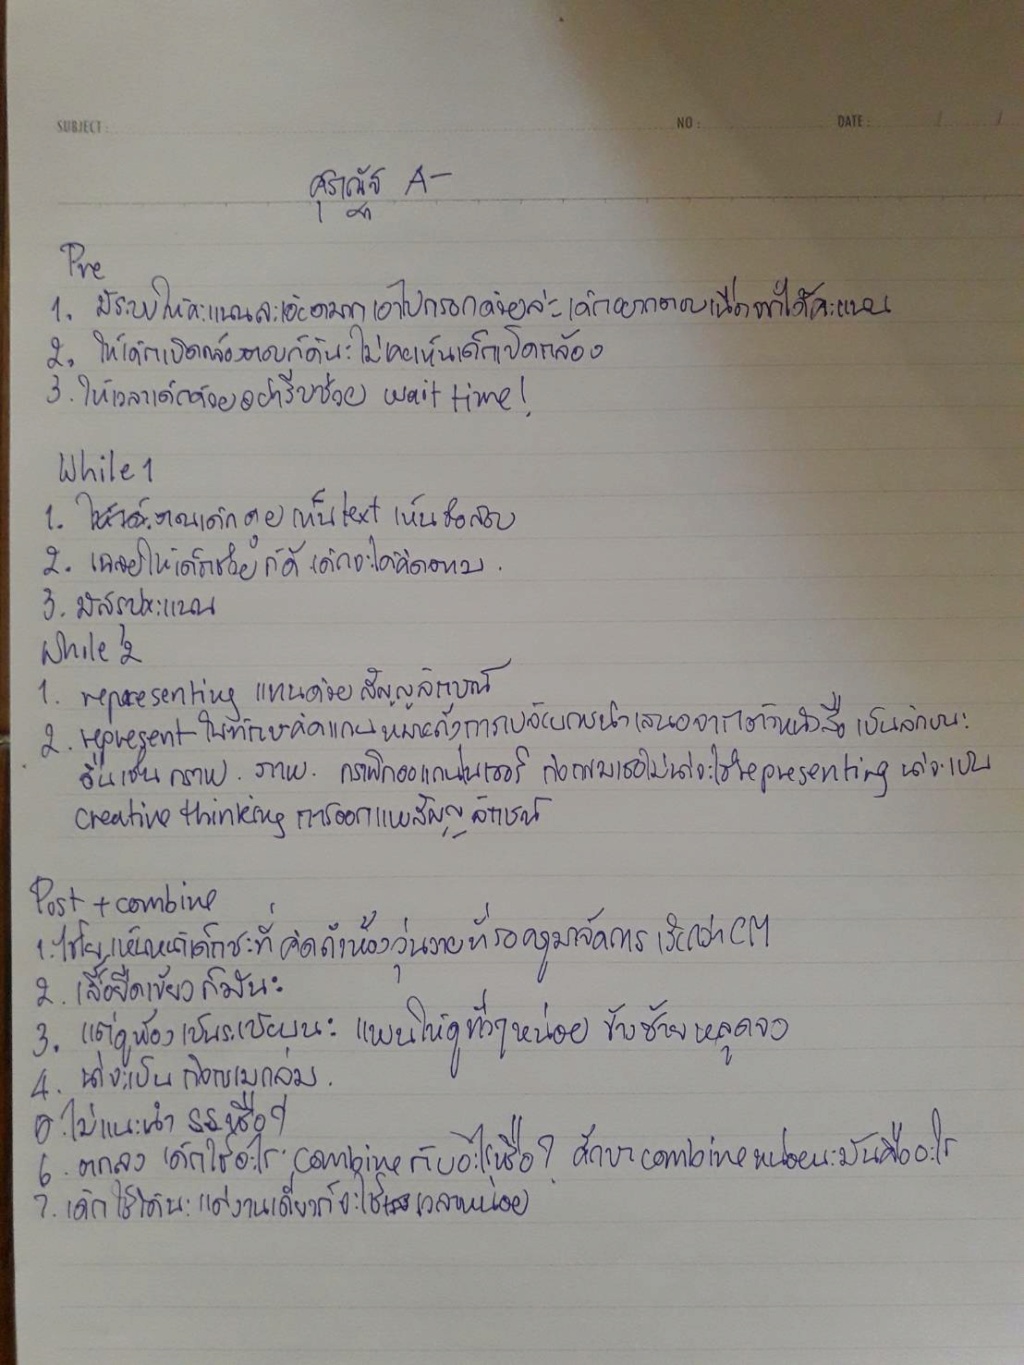 SUBJECT :
NO :
DATE : / /
A-
Pre
1. มีระบบให้คะแนนละเอียดมาก เอาไปกรอกด้วยล่ะ เด็กอยากตอบเนื่องจากได้คะแนน
2. ให้เด็กเปิดกล้องตอบก็ดีนะ ไม่เคยเห็นเด็กเปิดกล้อง
3. ให้เวลาเด็กด้วยอย่ารีบช่วย wait time!
While 1
1. เด็กดู เห็น text เห็นข้อสอบ
2. เฉลยให้เด็กช่วยก็ดี เด็กจะได้คิดตาม.
3. มีสรุปคะแนน
While 2
1. representing แทนด้วย สัญลักษณ์
2. represent ในทักษะคิดแทน หมายถึงการเปลี่ยนการนำเสนอจากตัวหนังสือ เป็นลักษณะ
อื่นเช่น กราฟ. ภาพ. กราฟิกออแกนไนเซอร์ กิจกรรมเธอไม่น่าจะใช่ representing น่าจะเป็น
creative thinking การออกแบบสัญลักษณ์
Post + combine
1. ไชโย เห็นหน้าเด็กซะที คิดถึงห้องวุ่นวายที่รอครูมาจัดการ เรียกว่า CM
2. เสื้อยืดเขียวก็มีนะ
3. แต่ดูห้องเป็นระเบียบนะ แพนให้ดูทั่วๆหน่อย ข้างซ้ายหลุดจอ
4. น่าจะเป็น กิจกรรมกลุ่ม.
5. ไม่แนะนำ ss หรือ?
6. ตกลง เด็กใช้อะไร combine กับอะไรหรือ? ศึกษา combine หน่อยนะมันคืออะไร
7. เด็กใช้ได้นะ แต่งานเดี่ยวก็จะใช้เวลาหน่อย